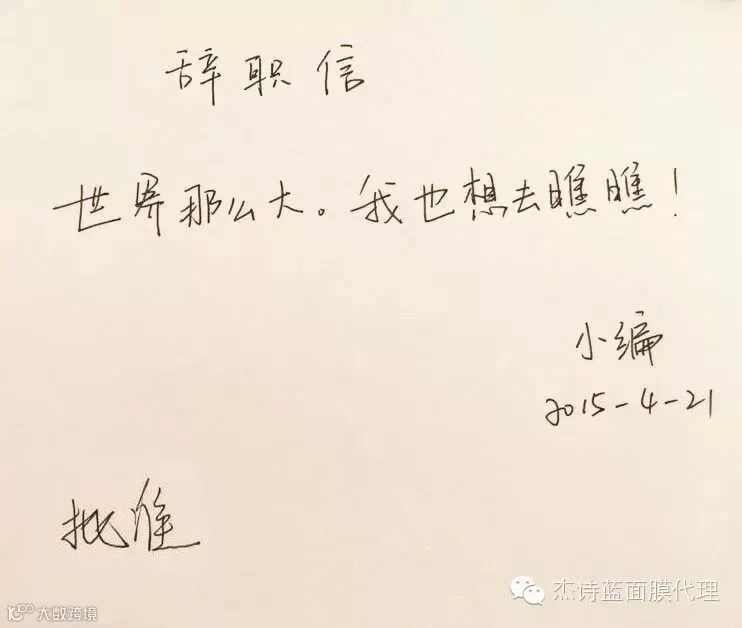 辞职信
世界那么大。我也想去瞧瞧！
小编
2015-4-21
批准
杰诗蓝面膜代理
大数跨境